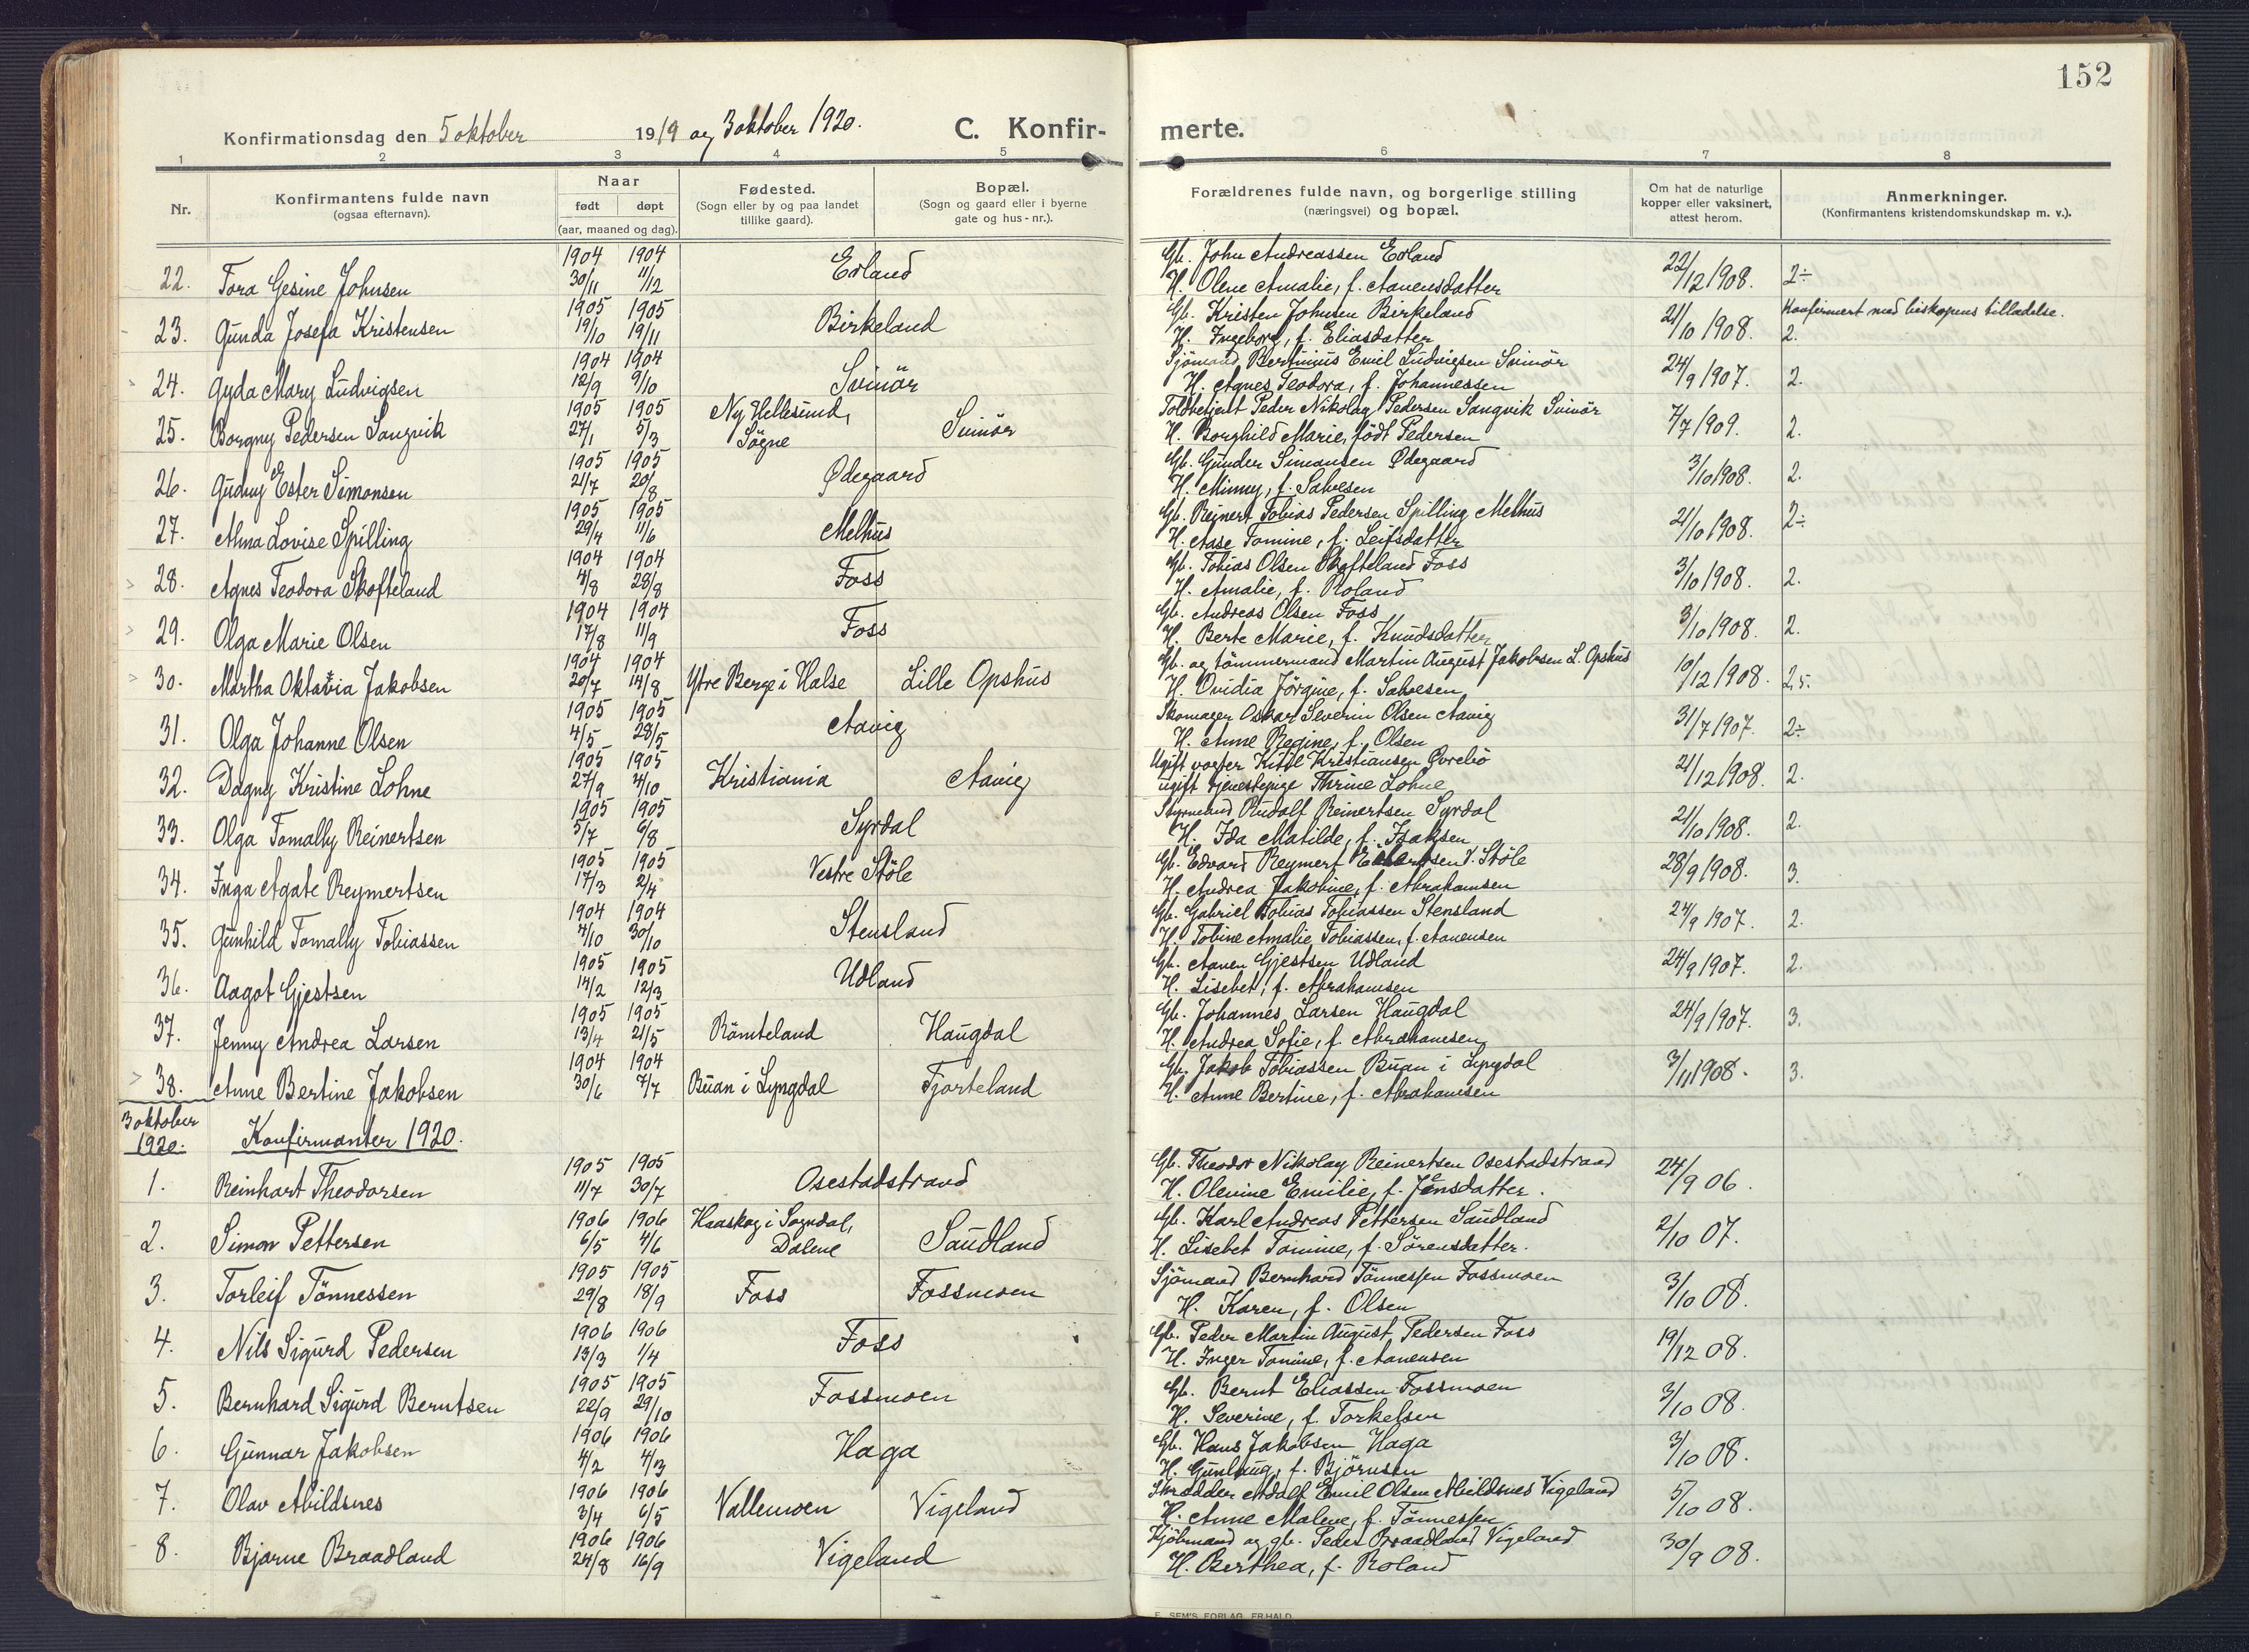 152
Konfirmationsdag den 5 oktober 1919 og 3 oktober 1920. C. Konfirmerte.
1 2 3 4 5 6 7 8
Nr. Konfirmantens fulde navn (ogsaa efternavn). Naar født døpt (aar, maaned og dag). Fødested. (Sogn eller by og paa landet tillike gaard). Bopæl. (Sogn og gaard eller i byerne gate og hus-nr.). Forældrenes fulde navn, og borgerlige stilling (næringsvei) og bopæl. Om hat de naturlige kopper eller vaksinert, attest herom. Anmerkninger. (Konfirmantens kristendomskundskap m. v.).
1904 1904 Gb. John Andreassen Erland
22. Tora Gesine Johnsen 30/11 11/12 Erland H. Olene Amalie, f. Aanensdatter 22/12 1908. 2÷
1905 1905 Gb. Kristen Johnsen Birkeland Konfirmert med biskopens tilladelse.
23. Gunda Josefa Kristensen 19/10 19/11 Birkeland H. Ingeborg, f. Eliasdatter 21/10 1908. 2.
1904 1904 Sjömand Bertinius Emil Ludvigsen Svinör
24. Gyda Mary Ludvigsen 12/9 9/10 Svinör H. Agnes Teodora, f. Johannessen 24/9 1907. 2.
1905 1905 Ny Hellesund, Toldbetjent Peder Nikolay Pedersen Sangvik Svinör
25. Borgny Pedersen Sangvik 27/1 5/3 Sögne Svinör H. Borghild Marie, födt Pedersen 7/7 1909. 2.
1905 1905 Gb. Gunder Simonsen Ødegaard
26. Gudny Ester Simonsen 21/7 20/8 Ødegaard H. Minny, f. Salvesen 3/10 1908. 2.
1905 1905 Gb. Reinert Tobias Pedersen Spilling Melhus
27. Anna Lovise Spilling 29/4 11/6 Melhus H. Aase Tomine, f. Leifsdatter 21/10 1908. 2÷
1904 1904 Gb. Tobias Olsen Skofteland Foss
28. Agnes Teodora Skofteland 4/8 28/8 Foss H. Amalie, f. Roland 3/10 1908. 2.
1904 1904 Gb. Andreas Olsen Foss
29. Olga Marie Olsen 17/8 11/9 Foss H. Berte Marie, f. Knudsdatter 3/10 1908. 2.
1904 1904 Gb. og tömmermand Martin August Jakobsen L. Opshus
30. Martha Oktavia Jakobsen 20/7 14/8 Ytre Berge i Halse Lille Opshus H. Ovidia Jörgine, f. Salvesen 10/12 1908. 2,5.
1905 1905 Skomager Oskar Severin Olsen Aavig
31. Olga Johanne Olsen 4/5 28/5 Aavig H. Anne Regine, f. Olsen 31/7 1907. 2÷
1905 1905 Ugift vogter Kittil Kristiansen Øvrebö
32. Dagny Kristine Lohne 27/9 4/10 Kristiania Aavig ugift tjenestepige Thrine Lohne 21/12 1908. 2.
1905 1905 Styrmand Rudolf Reinertsen Syrdal
33. Olga Tomally Reinertsen 5/7 6/8 Syrdal H. Ida Matilde, f. Isaksen 21/10 1908. 2.
1905 1905 Gb. Edvard Reymert V. Stöle
34. Inga Agate Reymertsen 17/3 2/4 Vestre Stöle H. Andrea Jakobine, f. Abrahamsen 28/9 1908. 3.
1904 1904 Gb. Gabriel Tobias Tobiassen Stensland
35. Gunhild Tomally Tobiassen 4/10 30/10 Stensland H. Tobine Amalie Tobiassen, f. Aanensen 24/9 1907. 2.
1905 1905 Gb. Aanen Gjestsen Udland
36. Aagot Gjestsen 14/2 12/3 Udland H. Lisebet, f. Abrahamsen 24/9 1907. 2.
1905 1905 Gb. Johannes Larsen Haugdal
37. Jenny Andrea Larsen 13/4 21/5 Römteland Haugdal H. Andrea Sofie, f. Abrahamsen 24/9 1907. 3.
1904 1904 Gb. Jakob Tobiassen Buan i Lyngdal
38. Anne Bertine Jakobsen 30/6 7/7 Buan i Lyngdal Fjorteland H. Anne Bertine, f. Abrahamsen 3/11 1908. 3.
3 oktober
1920. Konfirmanter 1920.
1905 1905 Gb. Theodor Nikolay Reinertsen Osestadstrand
1. Reinhart Theodorsen 11/7 30/7 Osestadstrand H. Olevine Emilie, f. Jensdatter. 24/9 06.
1906 1906 Haaskog i Sogndal, Gb. Karl Andreas Pettersen Saudland
2. Simon Pettersen 6/5 4/6 Dalene Saudland H. Lisebet Tomine, f. Sörensdatter. 2/10 07.
1905 1905 Sjömand Bernhard Tönnessen Fossmoen
3. Torleif Tönnessen 29/8 18/9 Foss Fossmoen H. Karen, f. Olsen 3/10 08.
1906 1906 Gb. Peder Martin August Pedersen Foss
4. Nils Sigurd Pedersen 13/3 1/4 Foss H. Inger Tomine, f. Aanensen 19/12 08.
1905 1905 Gb. Bernt Eliassen Fossmoen
5. Bernhard Sigurd Berntsen 22/9 29/10 Fossmoen H. Severine, f. Torkelsen 3/10 08.
1906 1906 Gb. Hans Jakobsen Haga
6. Gunnar Jakobsen 4/2 4/3 Haga H. Gunlaug, f. Björnsen 3/10 08.
1906 1906 Skrædder Adolf Emil Olsen Abildsnes Vigeland
7. Olav Abildsnes 3/4 6/5 Vallemoen Vigeland H. Anne Malene, f. Tönnessen 5/10 08.
1906 1906 Kjöbmand og gb. Peder Braadland Vigeland
8. Bjarne Braadland 24/8 16/9 Vigeland H. Berthea, f. Roland 30/9 08.
F. SEM'S FORLAG, FR.HALD.